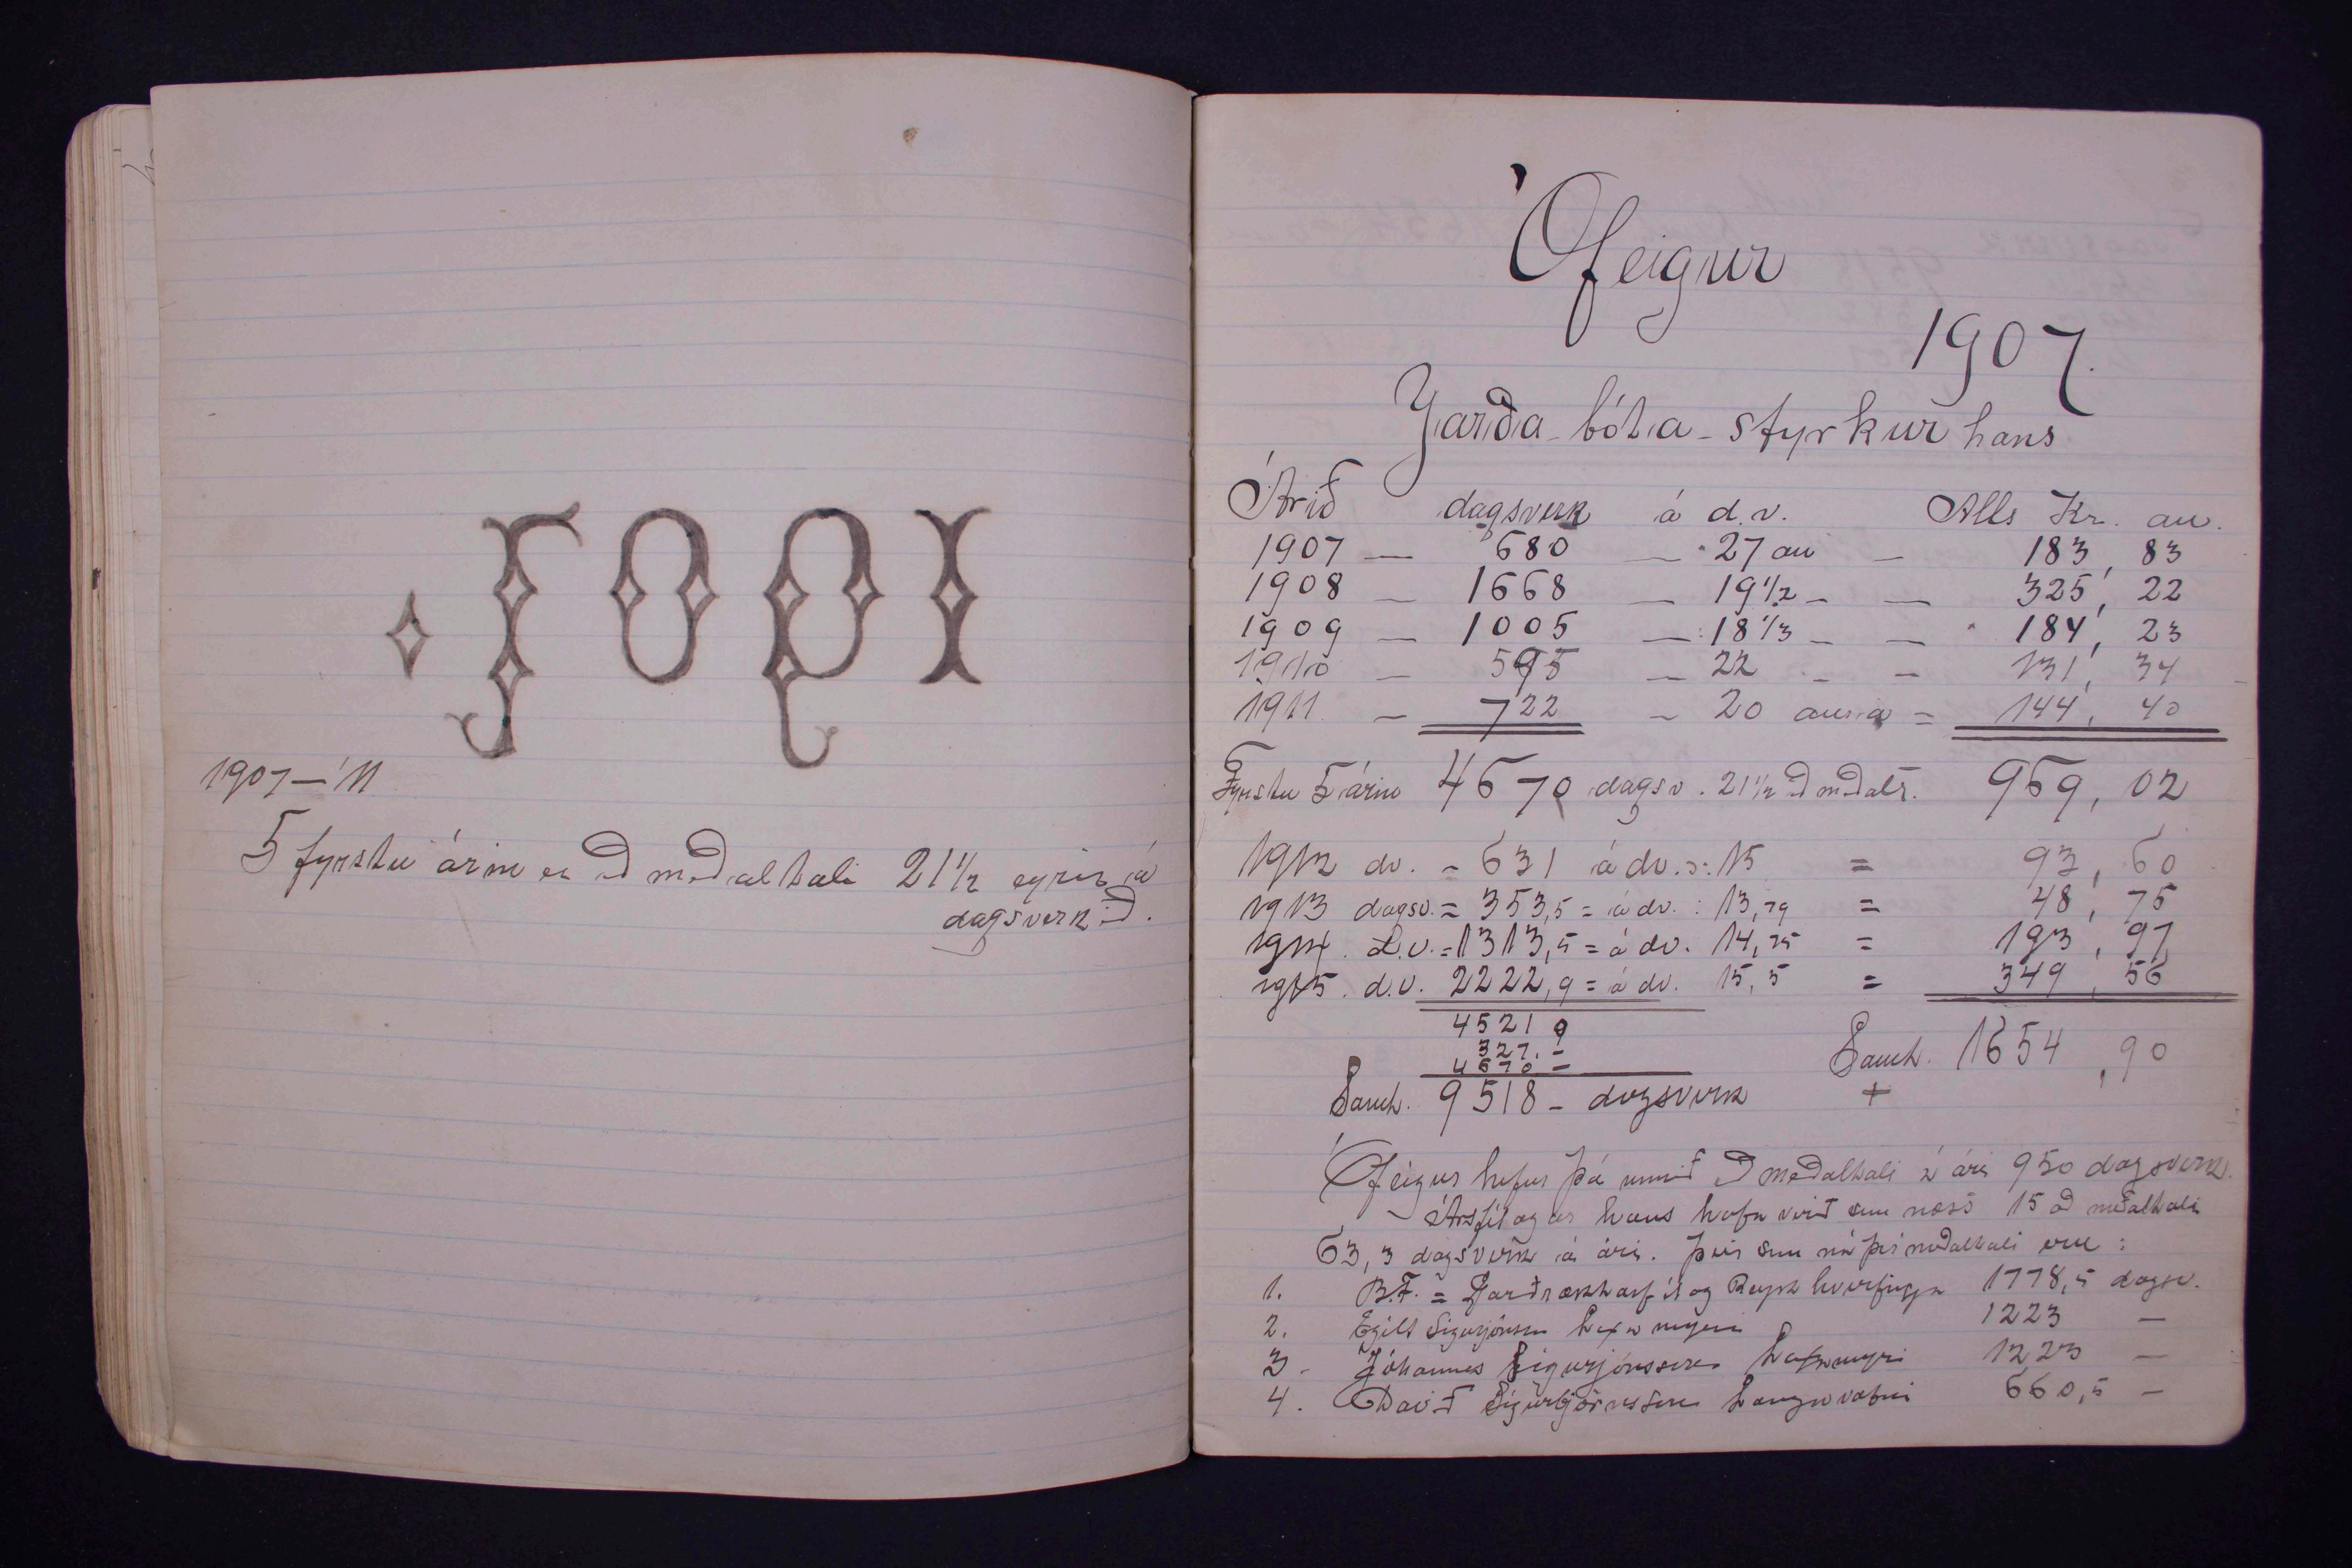 1907.
1907—'11
5 fyrstu árin er að meðaltali 21 1/2 eyrir á
dagsverkið.
Ófeigur
1907.
Jarða-bóta-styrkur hans
Árið dagsverk á d.v. Alls Kr. au.
1907 — 680 — 27 au — 183, 83
1908 — 1668 — 19 1/2 — — 325, 22
1909 — 1005 — 18 1/3 — — 184, 23
1910 — 595 — 22 — — 131, 34
1911 — 722 — 20 aura = 144, 40
Fyrstu 5 árin 4670 dagsv. 21 1/2 að meðalt. 969, 02
1912 dv. = 631 á dv. : 15 = 93, 60
1913 dagsv. = 353,5 = á dv. : 13,79 = 48, 75
1914. d.v. = 1313,5 = á dv. 14,75 = 193, 97
1915. d.v. 2222,9 = á dv. 15,5 = 349, 56
4521 9
327. –
4670 –
Samt. 1654, 90
Samt. 9518 – dagsverk +
Ófeigur hefur þá unnið að meðaltali á ári 950 dagsverk.
Ársfélagar hans hafa verið sem næst 15 að meðaltali
63,3 dagsverk á ári. Þeir sem ná því meðaltali eru :
1. B.F. = Jarðræktarfélag Reykhverfinga 1778,5 dagsv.
2. Egill Sigurjónsson Laxamýri 1223 —
3 - Jóhannes Sigurjónsson Laxamýri 1223 —
4. Davíð Sigurbjörnsson Langavatni 660,5 —